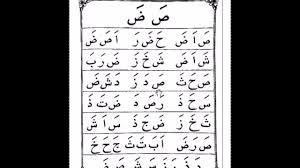 صَ ضَ
صَ اَ ضَ حَ ضَ رَ اَ صَ ضَ
شَ اَ ضَ شَ خَ زَ ضَ رَ بَ
صَ حَ ثَ صَ دَ زَ دَ شَ ضَ
سَ حَ ذَ رَ صَ دَ ضَ تَ ذَ
تَ خَ زَ ضَ جَ ذَ سَ اَ شَ
صَ رَ ضَ اَ بَ تَ ثَ جَ حَ خَ